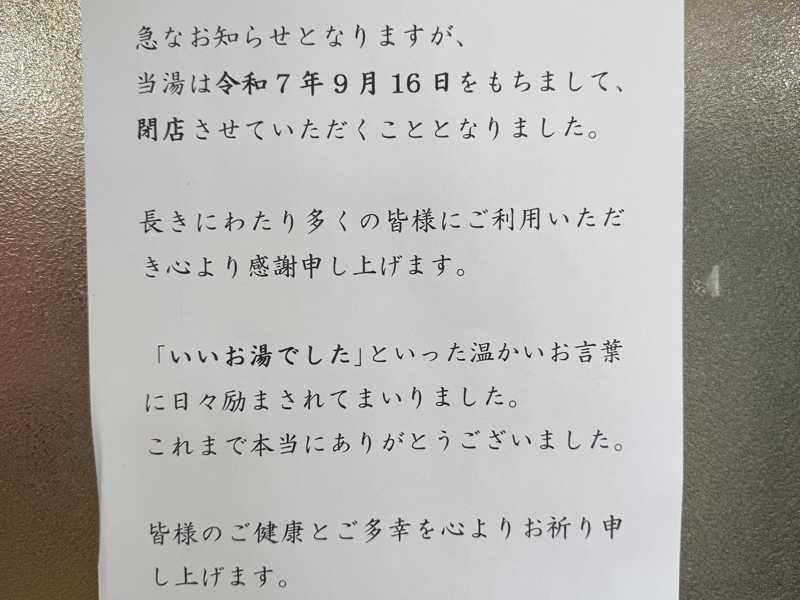 急なお知らせとなりますが、
当湯は令和７年９月 16 日をもちまして、
閉店させていただくこととなりました。
長きにわたり多くの皆様にご利用いただ
き心より感謝申し上げます。
「いいお湯でした」といった温かいお言葉
に日々励まされてまいりました。
これまで本当にありがとうございました。
皆様のご健康とご多幸を心よりお祈り申
し上げます。